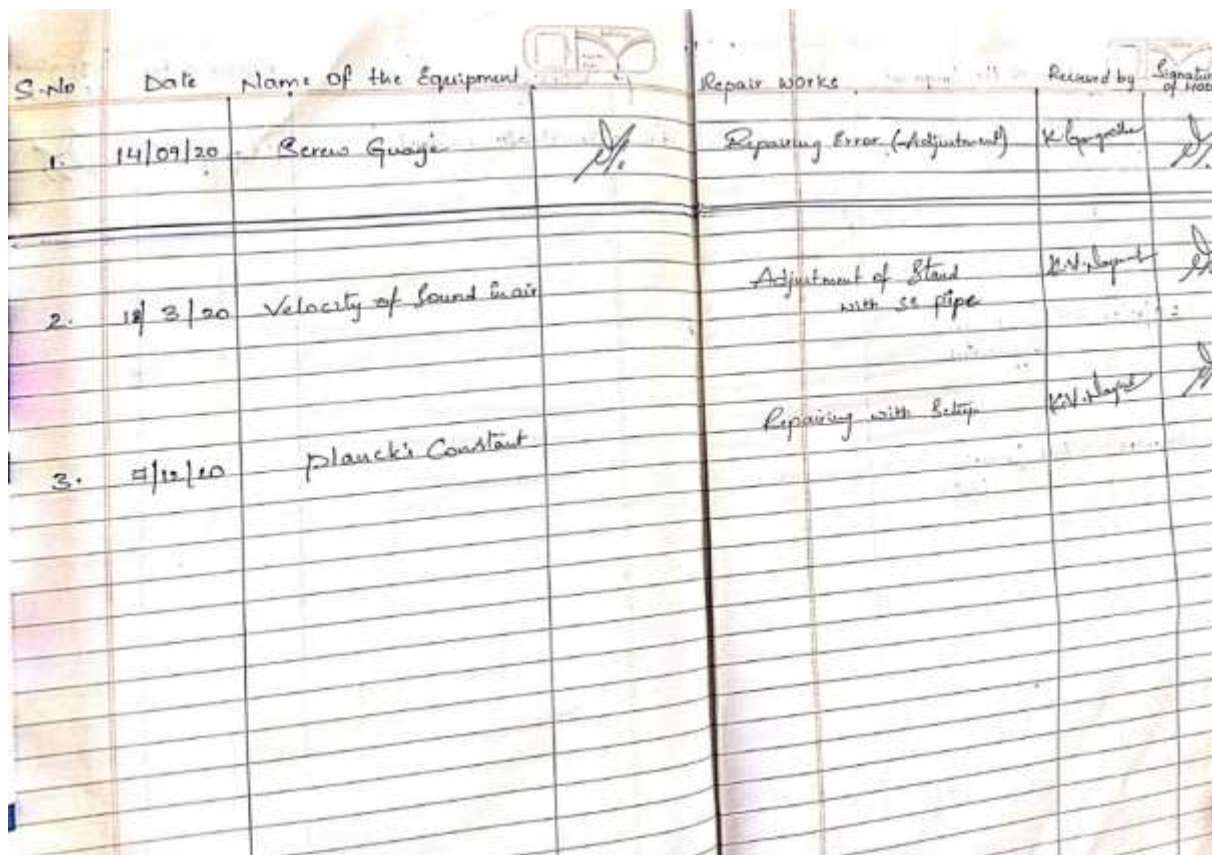 S.No Date Name of the Equipment Repair works Recieved by Signature of HOD
1. 14/09/20 Screw Guage Repairing Error (Adjustment)
2. 18/3/20 Velocity of Sound in air Adjustment of Stand
with ss pipe
3. /12/20 Planck's Constant Repairing with Setup K.V.